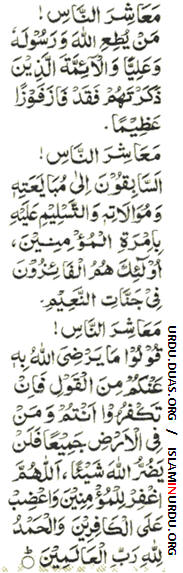 مَعَاشِرَ النَّاسِ!
مَنْ يُطِعِ اللهَ وَرَسُوْلَهٗ
وَعَلِيًّا وَالْاَئِمَّةَ الَّذِيْنَ
ذَكَرْتُهُمْ فَقَدْ فَازَ فَوْزًا
عَظِيْمًا.
مَعَاشِرَ النَّاسِ!
اَلسَّابِقُوْنَ اِلٰى مُبَايَعَتِهٖ
وَمُوَالَاتِهٖ وَالتَّسْلِيْمِ عَلَيْهِ
بِاِمْرَةِ الْمُؤْمِنِيْنَ،
اُولٰٓئِكَ هُمُ الْفَائِزُوْنَ
فِيْ جَنَّاتِ النَّعِيْمِ.
مَعَاشِرَ النَّاسِ!
قُوْلُوْا مَا يَرْضَى اللهُ بِهٖ
عَنْكُمْ مِنَ الْقَوْلِ فَاِنْ
تَكْفُرُوْا اَنْتُمْ وَمَنْ
فِي الْاَرْضِ جَمِيْعًا فَلَنْ
يَضُرَّ اللهَ شَيْئًا، اَللّٰهُمَّ
اغْفِرْ لِلْمُؤْمِنِيْنَ وَاغْضِبْ
عَلَى الْكَافِرِيْنَ وَالْحَمْدُ
لِلّٰهِ رَبِّ الْعَالَمِيْنَ
URDU.DUAS.ORG / ISLAMINURDU.ORG